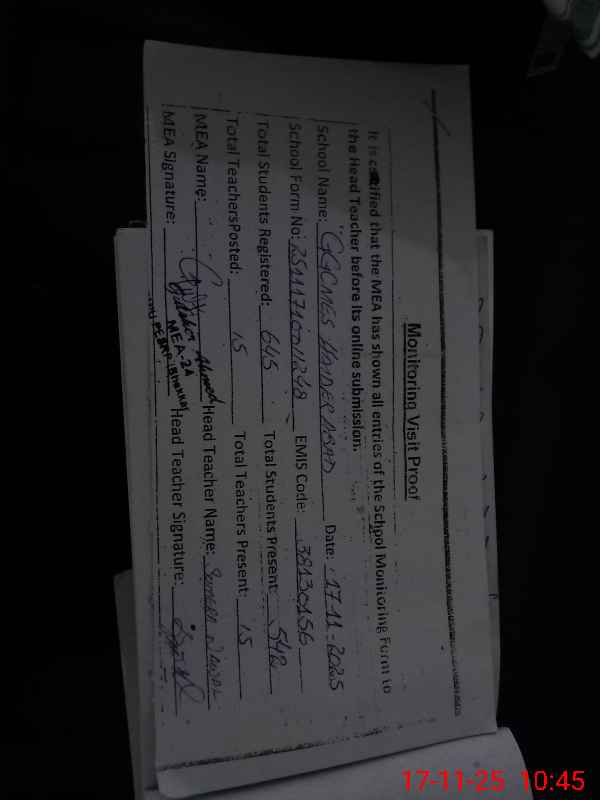 Monitoring Visit Proof
It is certified that the MEA has shown all entries of the School Monitoring Form to
the Head Teacher before its online submission.
School Name: GGCMES HAIDERABAD Date: 17-11-2025
School Form No: EMIS Code: 38130156
Total Students Registered: 645 Total Students Present: 542
Total TeachersPosted: 15 Total Teachers Present: 15
MEA Name: Ahmed Head Teacher Name:
MEA Signature: MEA-2A Head Teacher Signature:
17-11-25 10:45